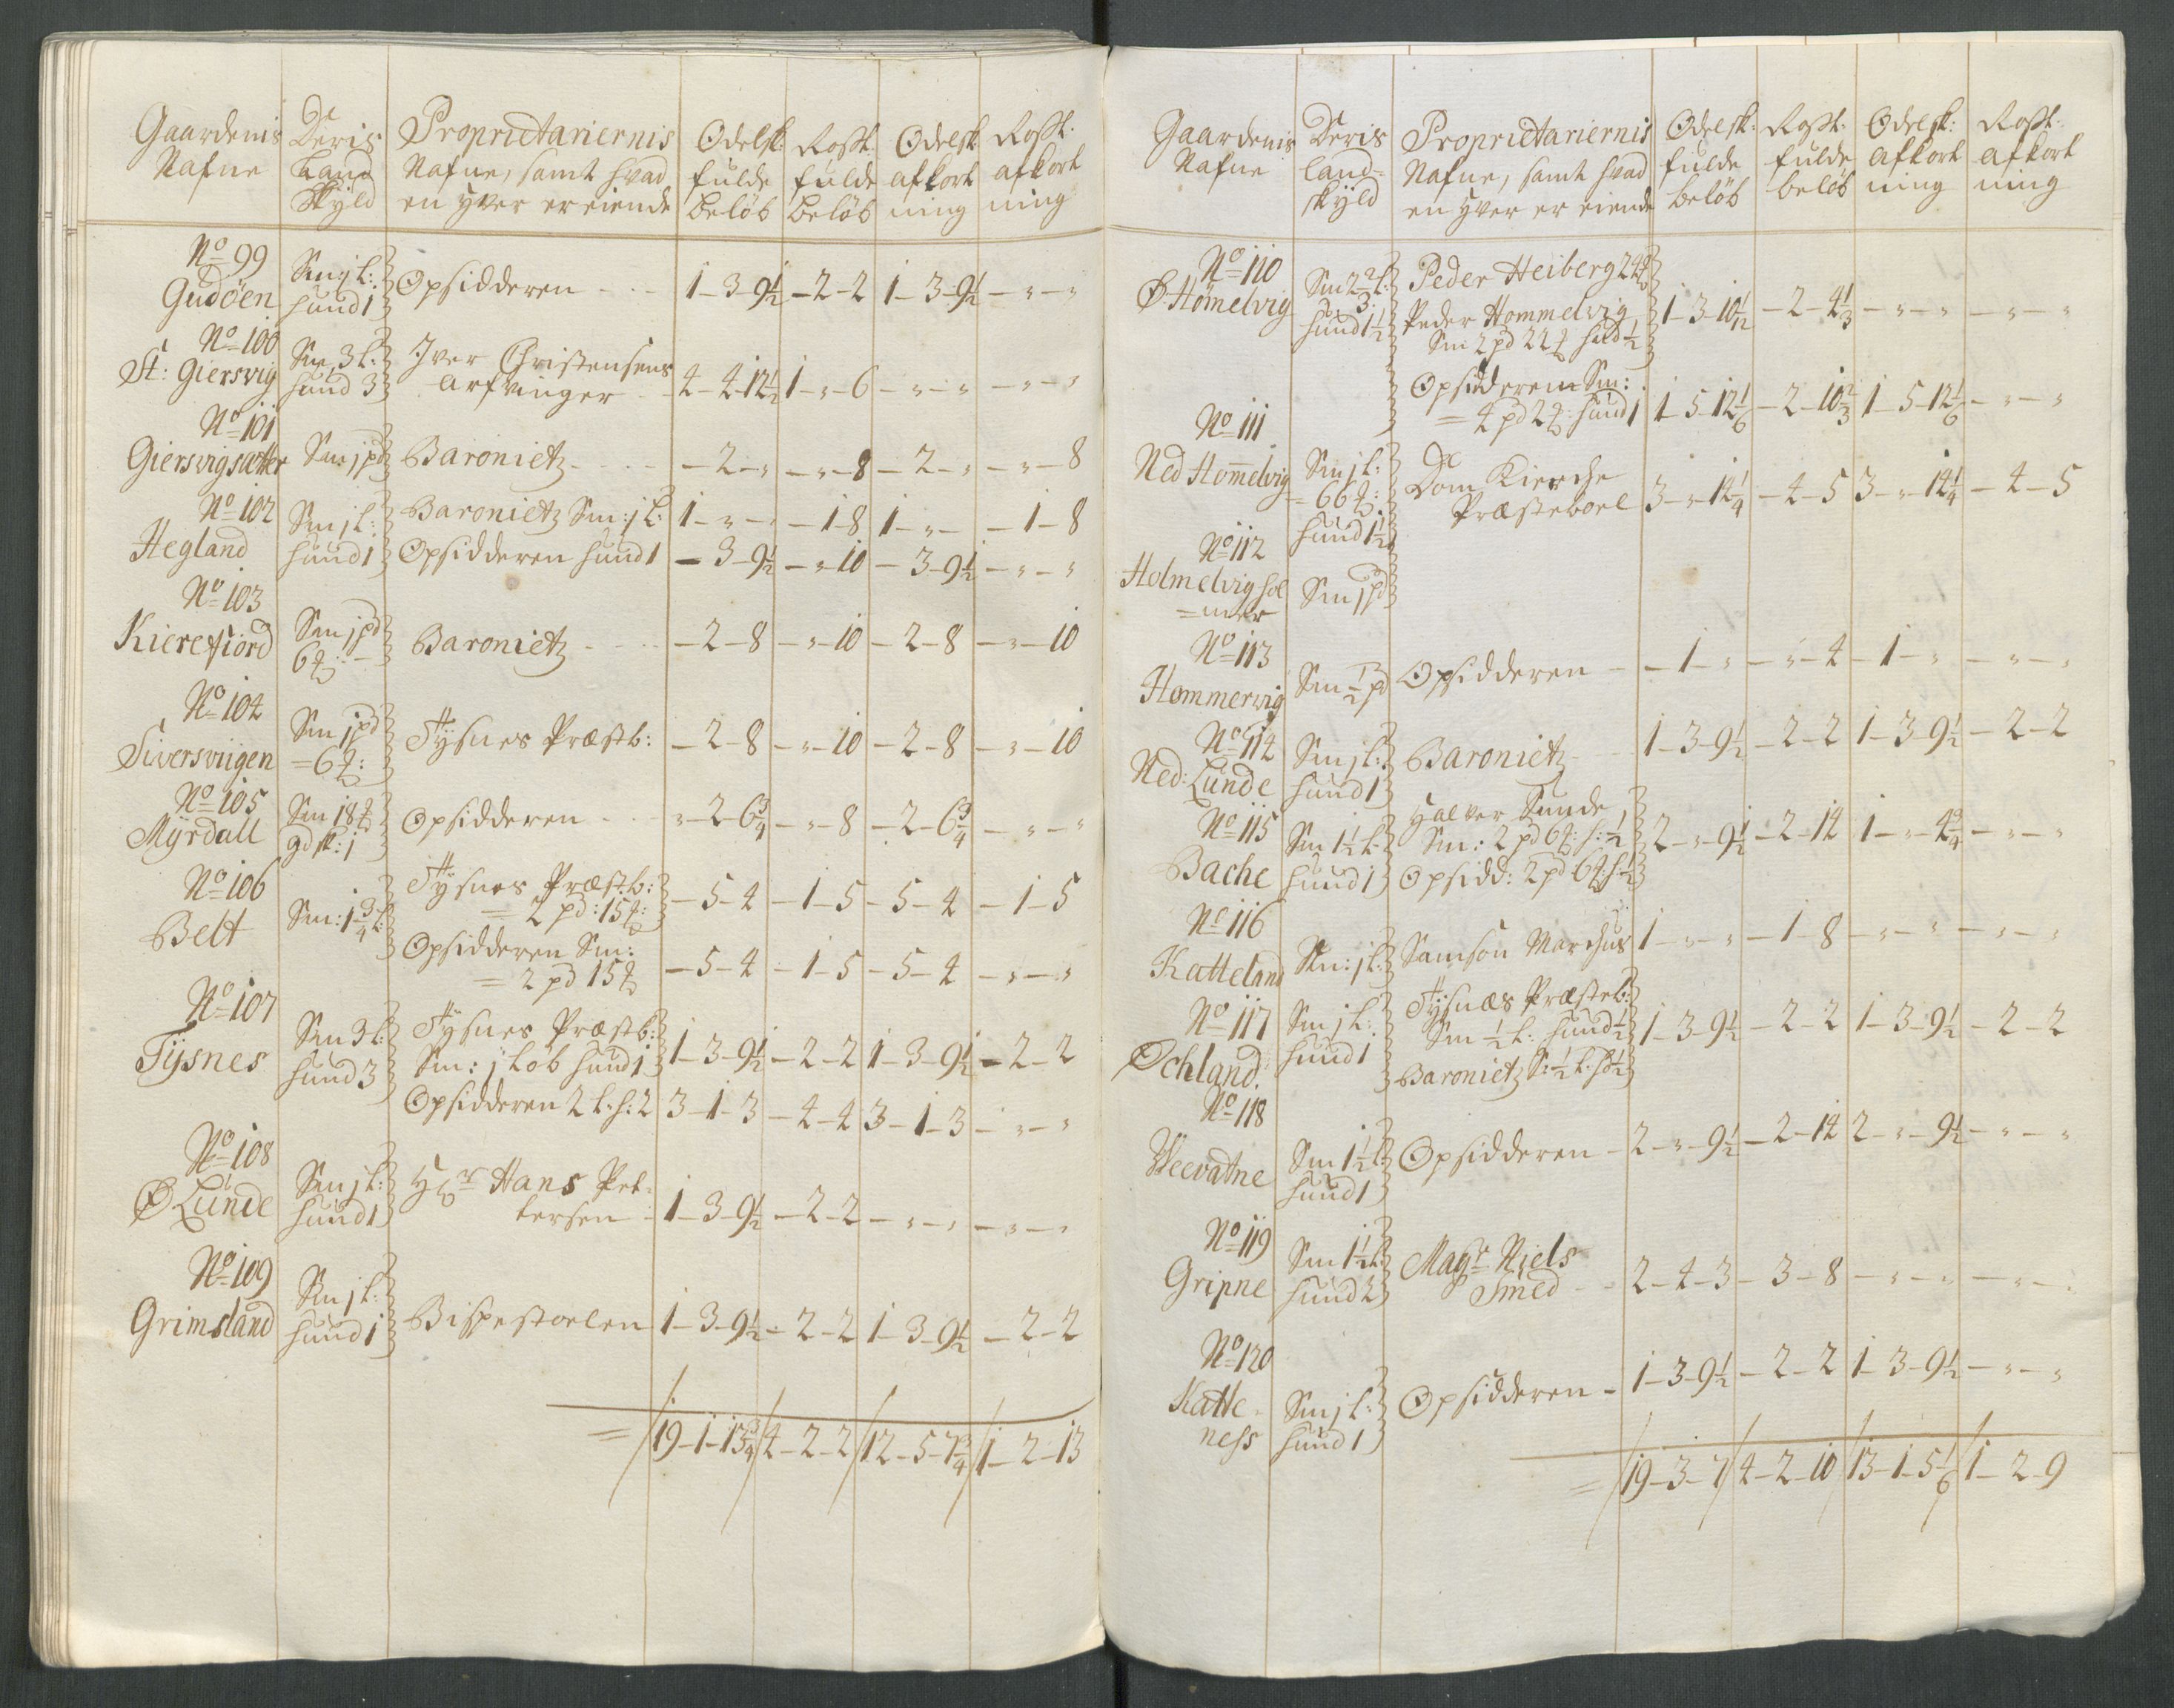 Gaardenis Nafne | Deris Land Skyld | Proprietariernis Nafne, samt hvad en hver er eiende | Odelsk: fulde beløb | Rostt: fulde beløb | Odelsk afkort ning | Rostt: afkort ning
No 99
Gudøen | Sm: j l: hund 1 | Opsidderen | 1-3-9½ | -2-2 | 1-3-9½ | -"-"
No 100
St: Giersvig | Sm 3 l: hund 3 | Iver Christensens arfvinger | 4-4-12½ | 1-"-6 | -"-" | -"-"
No 101
Giersvigsætter | Sm: j pd | Baronietz | -2-" | -"-8 | -2-" | -"-8
No 102
Hegland | Sm j l: hund 1 | Baronietz Sm: j l: | 1-"-" | -1-8 | 1-"- | -1-8
Opsidderen hund 1 | -3-9½ | -"-10 | -3-9½ | -"-"
No 103
Kierefiord | Sm j pd 6 | Baronietz | -2-8 | -"-10 | -2-8 | -"-10
No 104
Siversviigen | Sm j pd =6 | Tÿsnes Præstb: | -2-8 | -"-10 | -2-8 | -"-10
No 105
Mÿrdall | Sm 18 gd sk: j | Opsidderen | "-2-6¾ | -"-8 | -2-6¾ | -"-"
No 106
Belt | Sm: 1¾ l: | Tÿsnes Præstb: = 2 pd: 15 | -5-4 | -1-5 | -5-4 | -1-5
Opsidderen Sm: = 2 pd 15 | -5-4 | -1-5 | -5-4 | -"-"
No 107
Tÿsnes | Sm 3 l: hund 3 | Tÿsnes Præstb: Sm: j løb hund 1 | 1-3-9½ | -2-2 | 1-3-9½ | -2-2
Opsidderen 2 l: h: 2 | 3-1-3 | -4-4 | 3-1-3 | -"-"
No 108
Ø Lunde | Sm j l: hund 1 | Hr Hans Pet- tersen | 1-3-9½ | -2-2 | -"-" | -"-"
No 109
Grimsland | Sm j l: hund 1 | Bispestoelen | 1-3-9½ | -2-2 | 1-3-9½ | -2-2
= | 19-1-13¾ | 4-2-2 | 12-5-7¾ | 1-2-13
Gaardenis Nafne | Deris land= skyld | Proprietariernis Nafne, samt hvad en hver er eiende | Odelsk: fulde beløb | Rostt: fulde beløb | Odelsk: afkort ning | Rostt: afkort ning
No 110
Ø: Homelvig | Sm 2⅔ l: hund 1½ | Peder Heiberg 24
Peder Hommelvig Sm 2 pd 22 h ½ | 1-3-10 1/12 | -2-4⅓ | -"-" | -"-"
Opsidderen Sm: = 4 pd 2 hund 1 | 1-5-12⅙ | -2-10⅔ | 1-5-12⅙ | -"-"
No 111
Ned Homelvig | Sm j l: =66 hund 1½ | Dom Kierche Præsteboel | 3-"-14¼ | -4-5 | 3-"-14¼ | -4-5
No 112
Holmelvig hol =mer | Sm j pd
No 113
Hommervig | Sm ½ pd | Opsidderen | -1-" | -"-4 | -1-" | -"-"
No 114
Ned: Lunde | Sm j l: hund 1 | Baronietz | 1-3-9½ | -2-2 | 1-3-9½ | -2-2
No 115
Bache | Sm 1½ l: hund 1 | Halvor Tunde Sm: 2 pd 6 h: ½
Opsidd: 2 pd 6 h ½ | 2-"-9½ | -2-14 | 1-"-4¾ | -"-"
No 116
Katteland | Sm: j l: | Samson Marchus | 1-"-" | -1-8 | -"-" | -"-"
No 117
Øchland. | Sm j l: hund 1 | Tÿsnæs Præsteb: Sm ½ l: hund ½
Baronietz S: ½ l: h ½ | 1-3-9½ | -2-2 | 1-3-9½ | -2-2
No 118
Weevatne | Sm 1½ l: hund 1 | Opsidderen | 2-"-9½ | -2-14 | 2-"-9½ | -"-"
No 119
Gripne | Sm 1½ l: hund 2 | Magr Niels Smed | 2-4-3 | -3-8 | -"-" | -"-"
No 120
Katte- ness | Sm j l: hund 1 | Opsidderen | 1-3-9½ | -2-2 | 1-3-9½ | -"-"
= | 19-3-7 | 4-2-10 | 13-1-5⅙ | 1-2-9